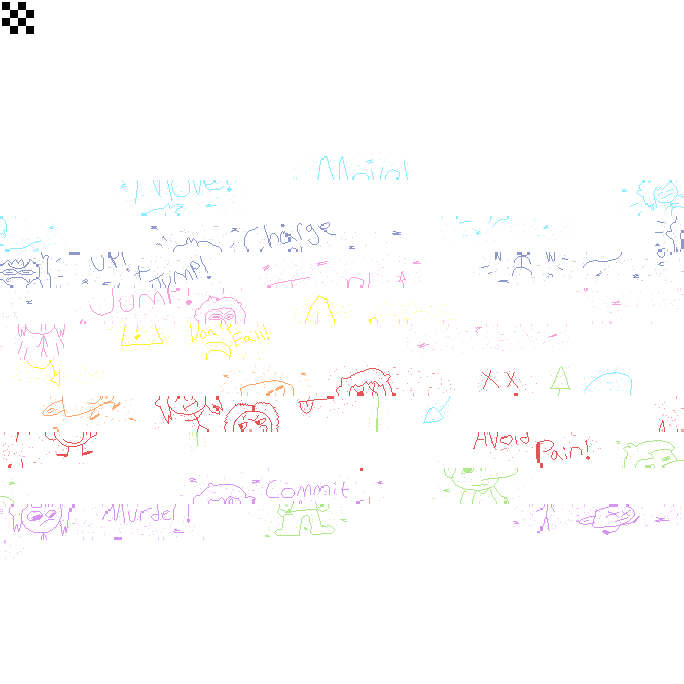 Move!
Charge
UP!
+ Jump!
Jump!
Don't
Fail!
Avoid
Pain!
Commit
Murder!